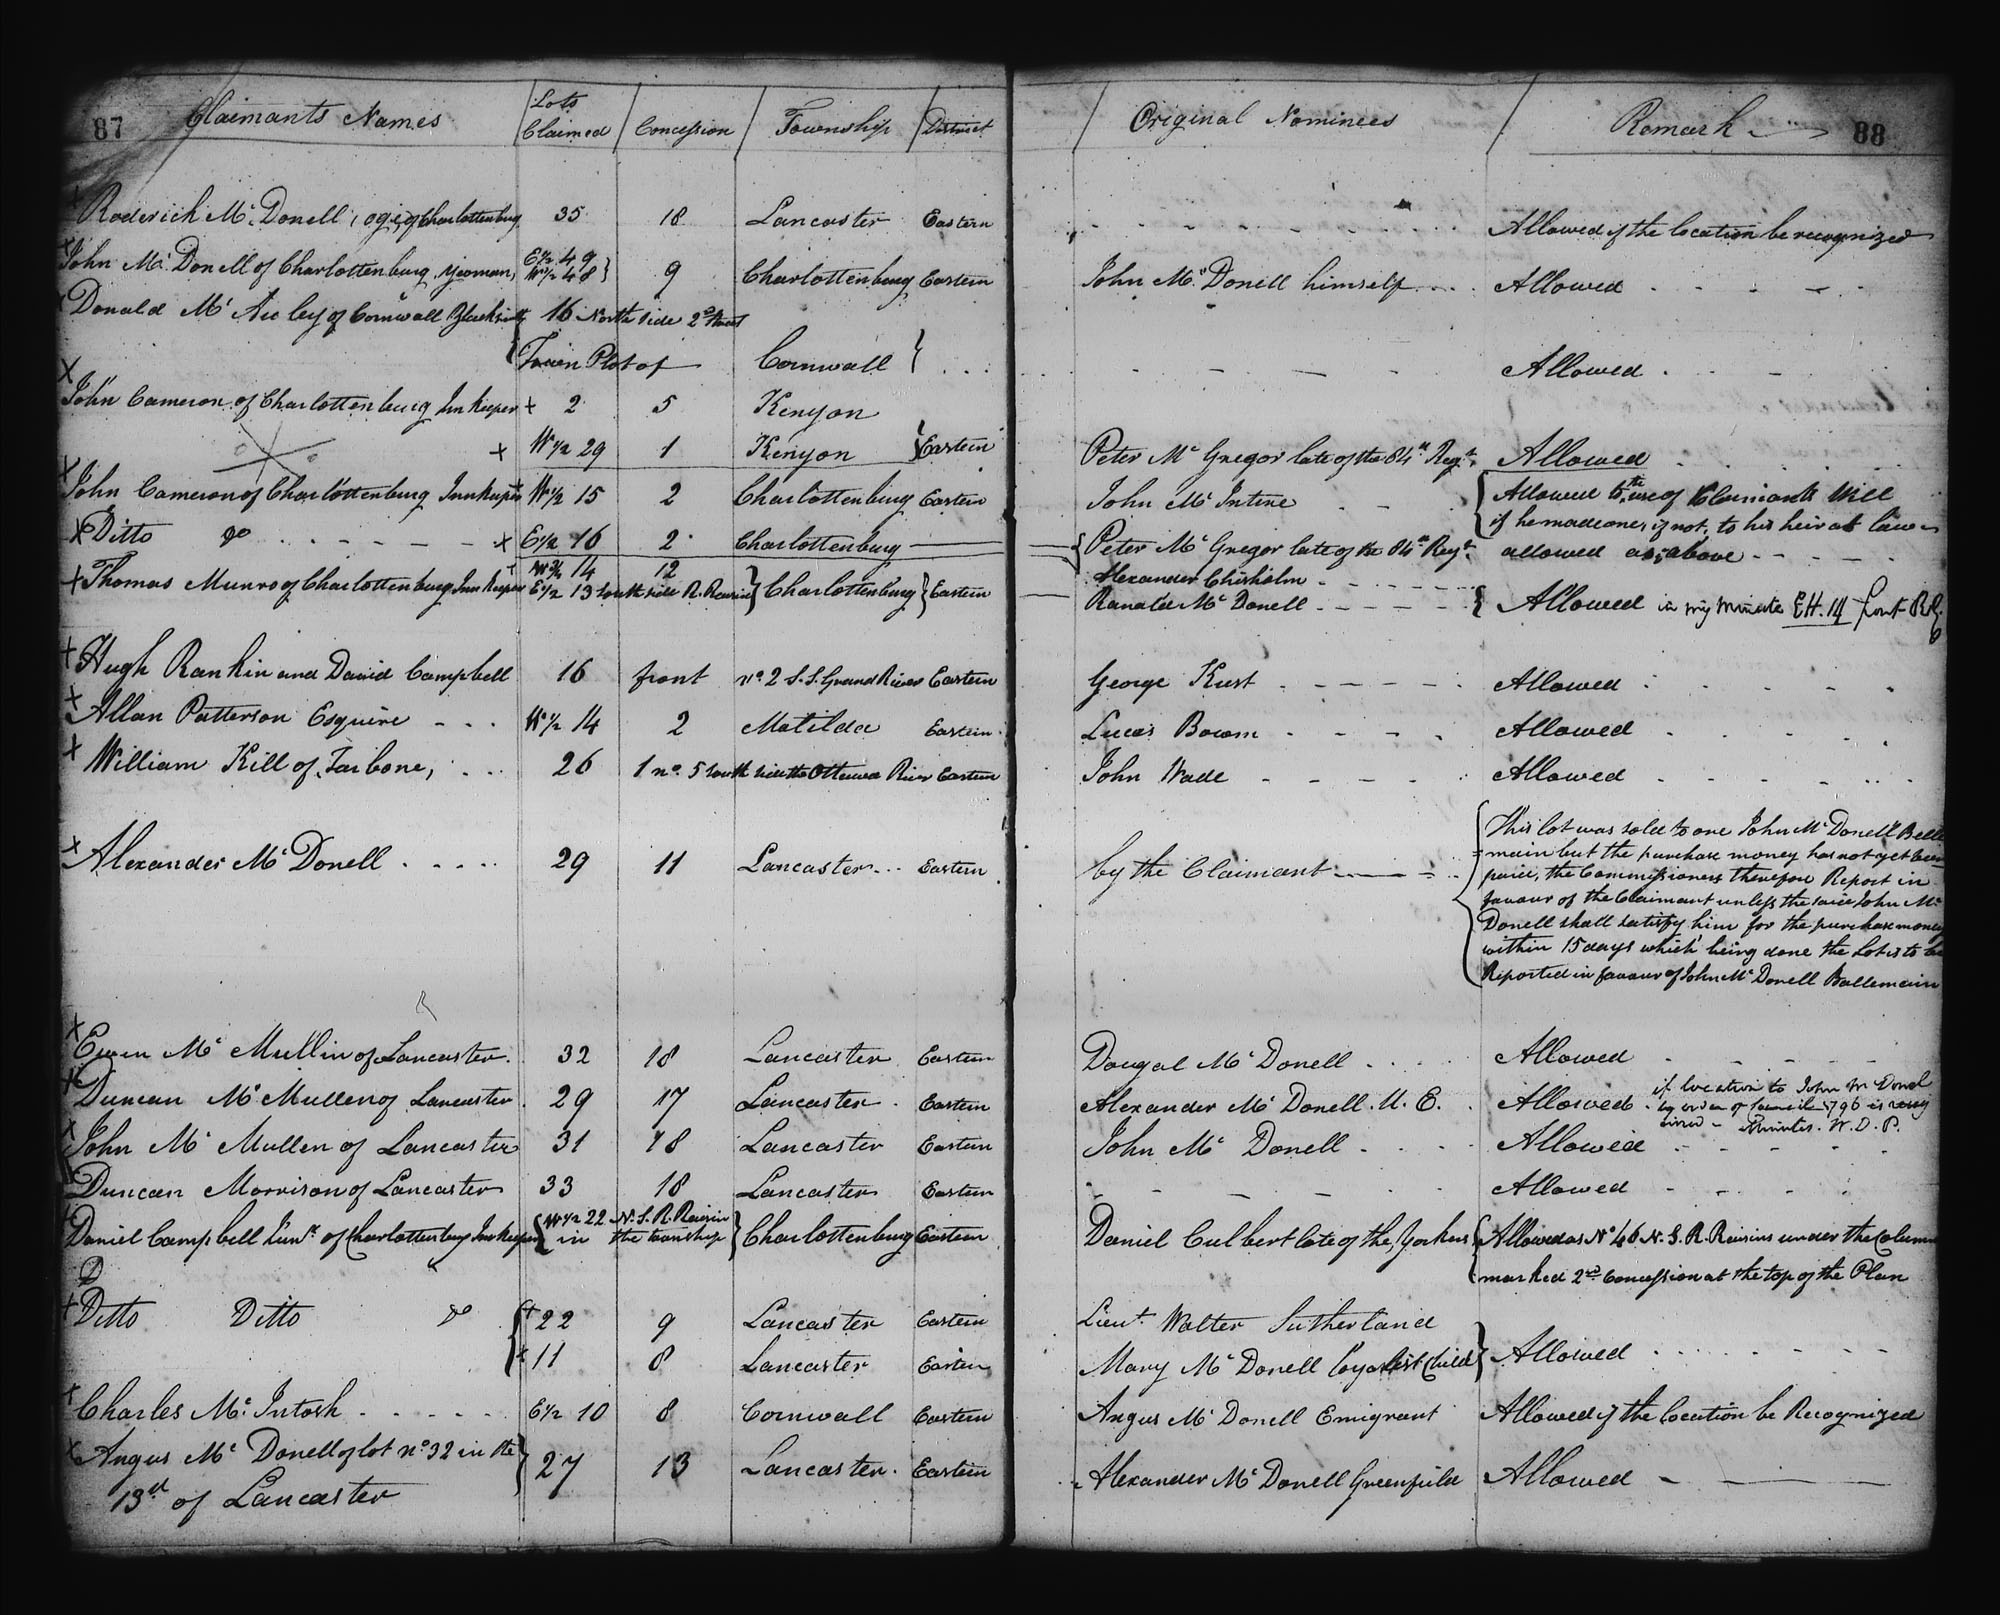 87 Claimants Names Lots Claimed Concession Township District Original Nominees Remark 88
Roderick Mc Donell, of Charlottenburg 35 18 Lancaster Eastern Allowed if the location be recognized
John Mc Donell of Charlottenburg, yeoman, E1/2 49 W1/2 48 } 9 Charlottenburg Eastern John Mc Donell himself Allowed
Donald Mc Auley of Cornwall Blacksmith 16 North side 2d Street
Town Plot of Cornwall } Allowed
John Cameron of Charlottenburg Inn Keeper + 2 5 Kenyon
+ W1/2 29 1 Kenyon } Eastern Peter Mc Gregor late of the 84th Regt. Allowed
John Cameron of Charlottenburg Innkeeper W1/2 15 2 Charlottenburg Eastern John Mc Intire { Allowed to the use of Claimants Will
if he made one, if not, to his heir at law
Ditto do + E1/2 16 2 Charlottenburg { Peter Mc Gregor late of the 84th Regt. allowed as above
+ W1/2 14 12 Alexander Chisholm
Thomas Munro of Charlottenburg Inn Keeper E1/2 13 South side R. Raisin } Charlottenburg } Eastern Ranald Mc Donell { Allowed in my minute E.H. 14 front R R
Hugh Rankin and David Campbell 16 front no. 2 S.S. Grand River Eastern George Kust Allowed
Allan Patterson Esquire W1/2 14 2 Matilda Eastern Lucas Bowm Allowed
William Kill of Farbone, 26 1 no. 5 south side the Ottawa River Eastern John Wade Allowed
Alexander Mc Donell 29 11 Lancaster Eastern by the Claimant
{ This lot was sold to one John Mc Donell Balle
=main but the purchase money has not yet been
paid, the Commissioners therefore Report in
favour of the Claimant unless the said John Mc
Donell shall satisfy him for the purchase money
within 15 days which being done the Lot is to be
Reported in favour of John Mc Donell Ballemain
Ewen Mc Mullin of Lancaster. 32 18 Lancaster Eastern Dougal Mc Donell Allowed
Duncan Mc Mullen of Lancaster. 29 17 Lancaster Eastern Alexander Mc Donell. U. E. Allowed if location to John Mc Donel
by order of Council 1796 is recog
nized - Minutes. W. D. P.
John Mc Mullen of Lancaster 31 18 Lancaster Eastern John Mc Donell Allowed
Duncan Morrison of Lancaster 33 18 Lancaster Eastern Allowed
Daniel Campbell Junr. of Charlottenburg Innkeeper { W1/2 22 N.S. R. Raisin in the township } Charlottenburg Eastern Daniel Culbert late of the Yorkers { Allowed as No 46 N. S. R. Raisins under the Column
marked 2nd Concession at the top of the Plan
Ditto Ditto do { + 22 9 Lancaster Eastern Lieut. Walter Sutherland
x 11 8 Lancaster Eastern Mary Mc Donell Loyalist Child } Allowed
Charles Mc Intosh E1/2 10 8 Cornwall Eastern Angus Mc Donell Emigrant Allowed if the location be Recognized
Angus Mc Donell of lot no. 32 in the } 27 13 Lancaster. Eastern Alexander Mc Donell Greenfield Allowed
13th of Lancaster